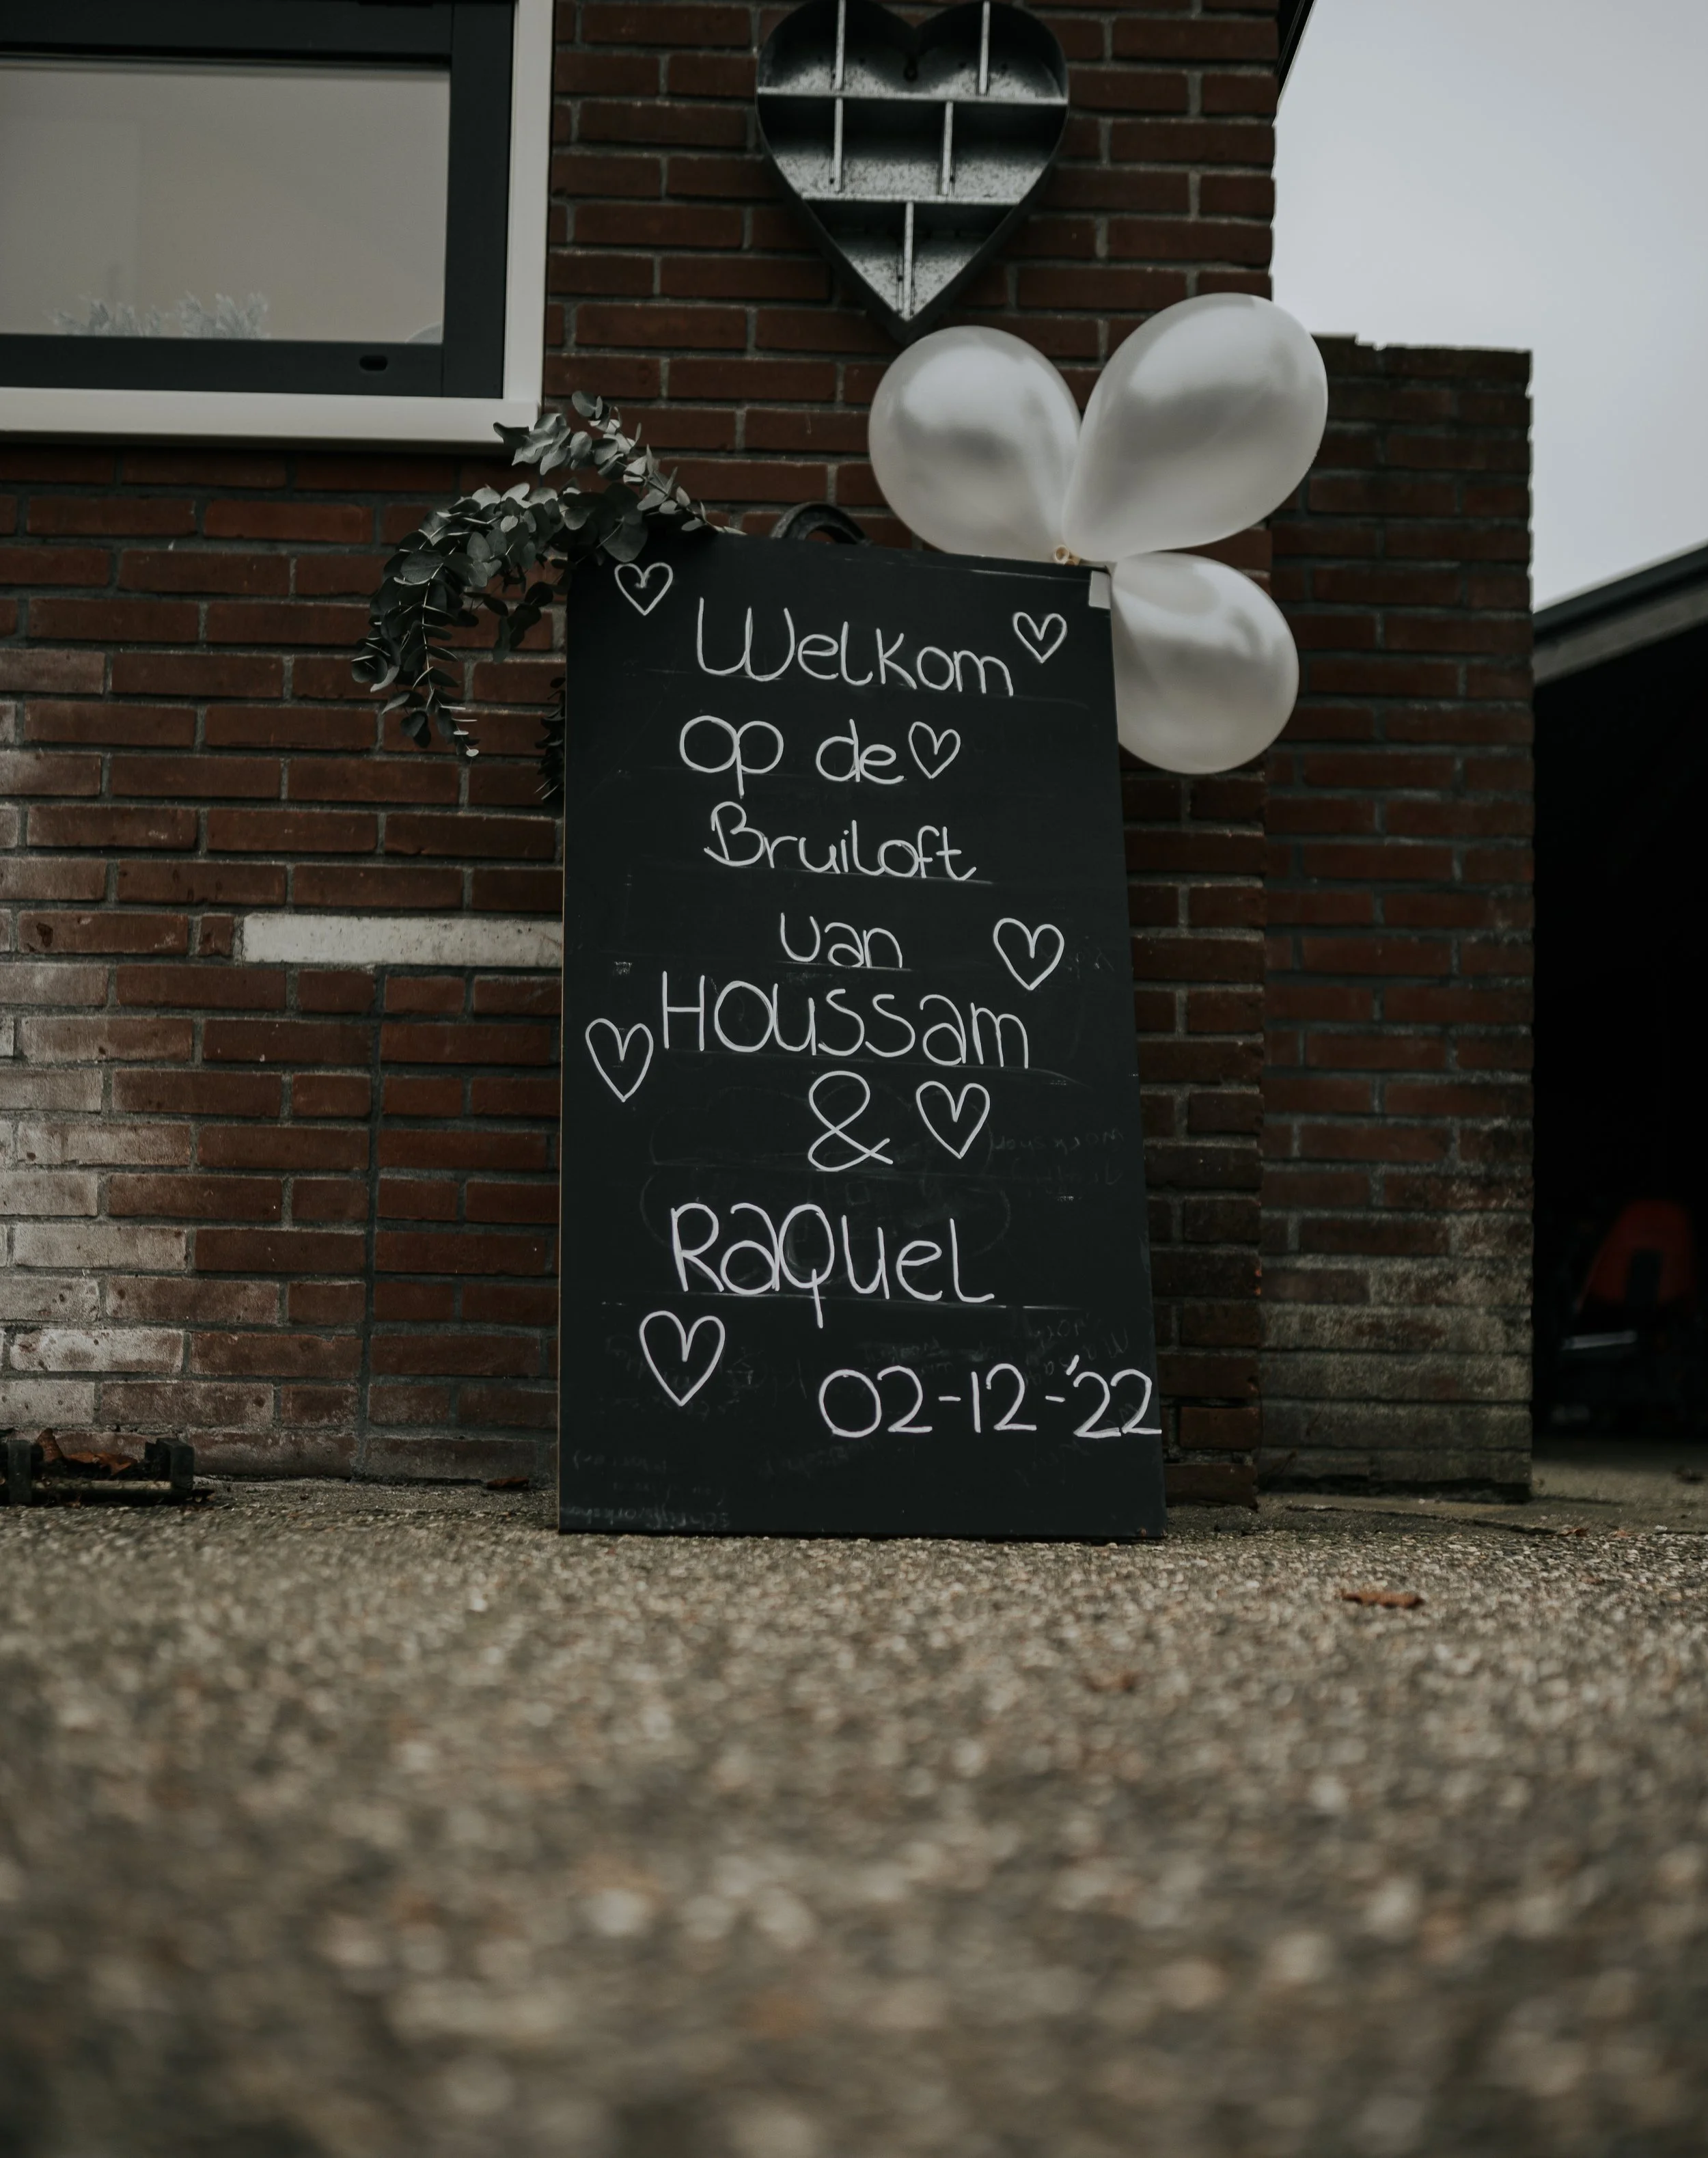 Welkom
op de
Bruiloft
van
Houssam
&
Raquel
02-12-'22